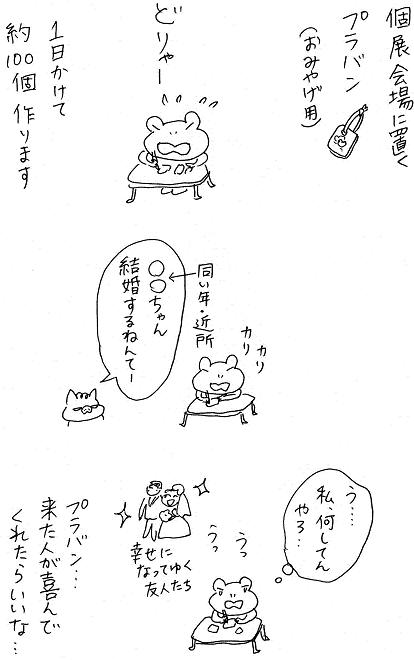 個展会場に置く
プラバン
(おみやげ用)
どりゃー
1日かけて
約100個作ります
同い年・近所
○○ちゃん
結婚するねんてー
カリ
カリ
う……
私、何してん
やろ…
うっ
うっ
幸せに
なってゆく
友人たち
プラバン…
来た人が喜んで
くれたらいいな…